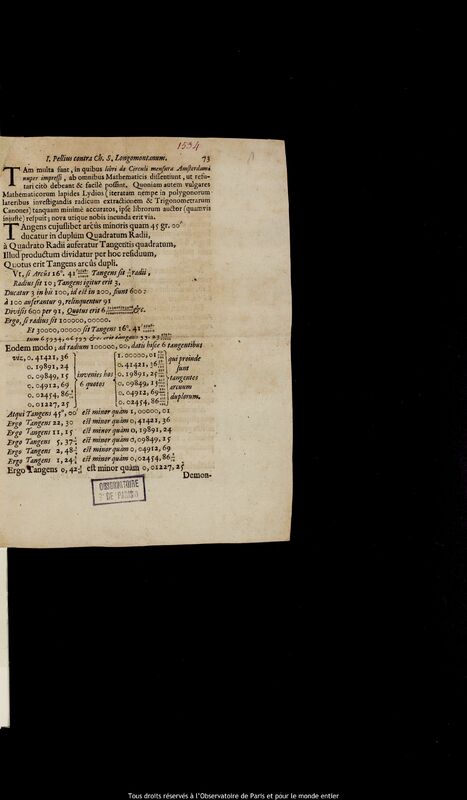 1534
I. Pellius contra Ch. S. Longomontanum. 73
TAm multa sunt, in quibus libri de Circuli mensura Amsterdami
nuper impressi, ab omnibus Mathematicis dissentiunt, ut refu-
tari citò debeant & facilè possint. Quoniam autem vulgares
Mathematicorum lapides Lydios (iteratam nempe in polygonorum
lateribus investigandis radicum extractionem & Trigonometrarum
Canones) tanquam minimè accuratos, ipse librorum auctor (quamvis
injustè) respuit; nova utique nobis incunda erit via.
TAngens cujuslibet arcûs minoris quam 45 gr. 00'
ducatur in duplum Quadratum Radii,
à Quadrato Radii auferatur Tangentis quadratum,
Illud productum dividatur per hoc residuum,
Quotus erit Tangens arcûs dupli.
Vt, si Arcûs 16°. 41' Tangens sit radii,
Radius sit 10; Tangens igitur erit 3,
Ducatur 3 in bis 100, id est in 200, fiunt 600:
à 100 auferantur 9, relinquentur 91
Divisis 600 per 91, Quotus erit 6 &c.
Ergo, si radius sit 100000,00000.
Et 30000,00000 sit Tangens 16°. 41'
Eodem modo, ad radium 100000,00, datis hisce 6 tangentibus
vic, 0. 41421, 36
0. 19891, 24
0. 09849, 15
0. 04912, 69
0. 02454, 86
0. 01227, 25
invenies hos
6 quotos
1. 00000, 01
0. 41421, 36
0. 19891, 25
0. 09849, 15
0. 04912, 69
0. 02454, 86
qui proinde
sunt
tangentes
arcuum
duplorum.
Atqui Tangens 45°, 00' est minor quàm 1, 00000, 01
Ergo Tangens 22, 30 est minor quàm 0,41421, 36
Ergo Tangens 11, 15 est minor quàm 0, 19891, 24
Ergo Tangens 5, 37 est minor quàm 0,09849, 15
Ergo Tangens 2, 48 est minor quàm 0,04912, 69
Ergo Tangens 1, 24 est minor quàm 0,02454, 86
Ergo Tangens 0, 42 est minor quàm 0,01227, 25
Demon-
OBSERVATOIRE
DE PARIS
Tous droits réservés à l'Observatoire de Paris et pour le monde entier